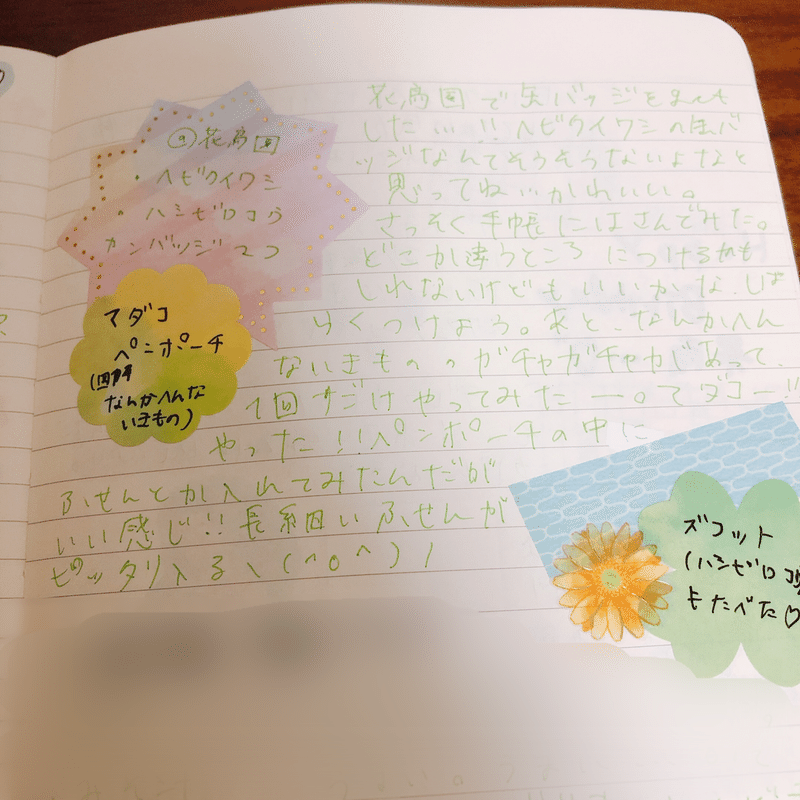 @花鳥園
・ヘビクイワシ
・ハシビロコウ
カンバッジ2コ
マダコ
ペンポーチ
(図解
なんかへんな
いきもの)
花鳥園で缶バッジを
した…!!ヘビクイワシの缶バ
ッジなんてそうそうないよなと
思ってね…かわいい。
さっそく手帳にはさんでみた。
どこか違うところにつけるかも
しれないけどもいいかな、しば
らくつけよう。あと、なんかへん
ないきもののガチャガチャがあって、
1回だけやってみたー。マダコー!!
やった!!ペンポーチの中に
ふせんとか入れてみたんだが
いい感じ!!長細いふせんが
ピッタリ入る\(^o^)/
ズコット
(ハシビロコウ
もたべた♡